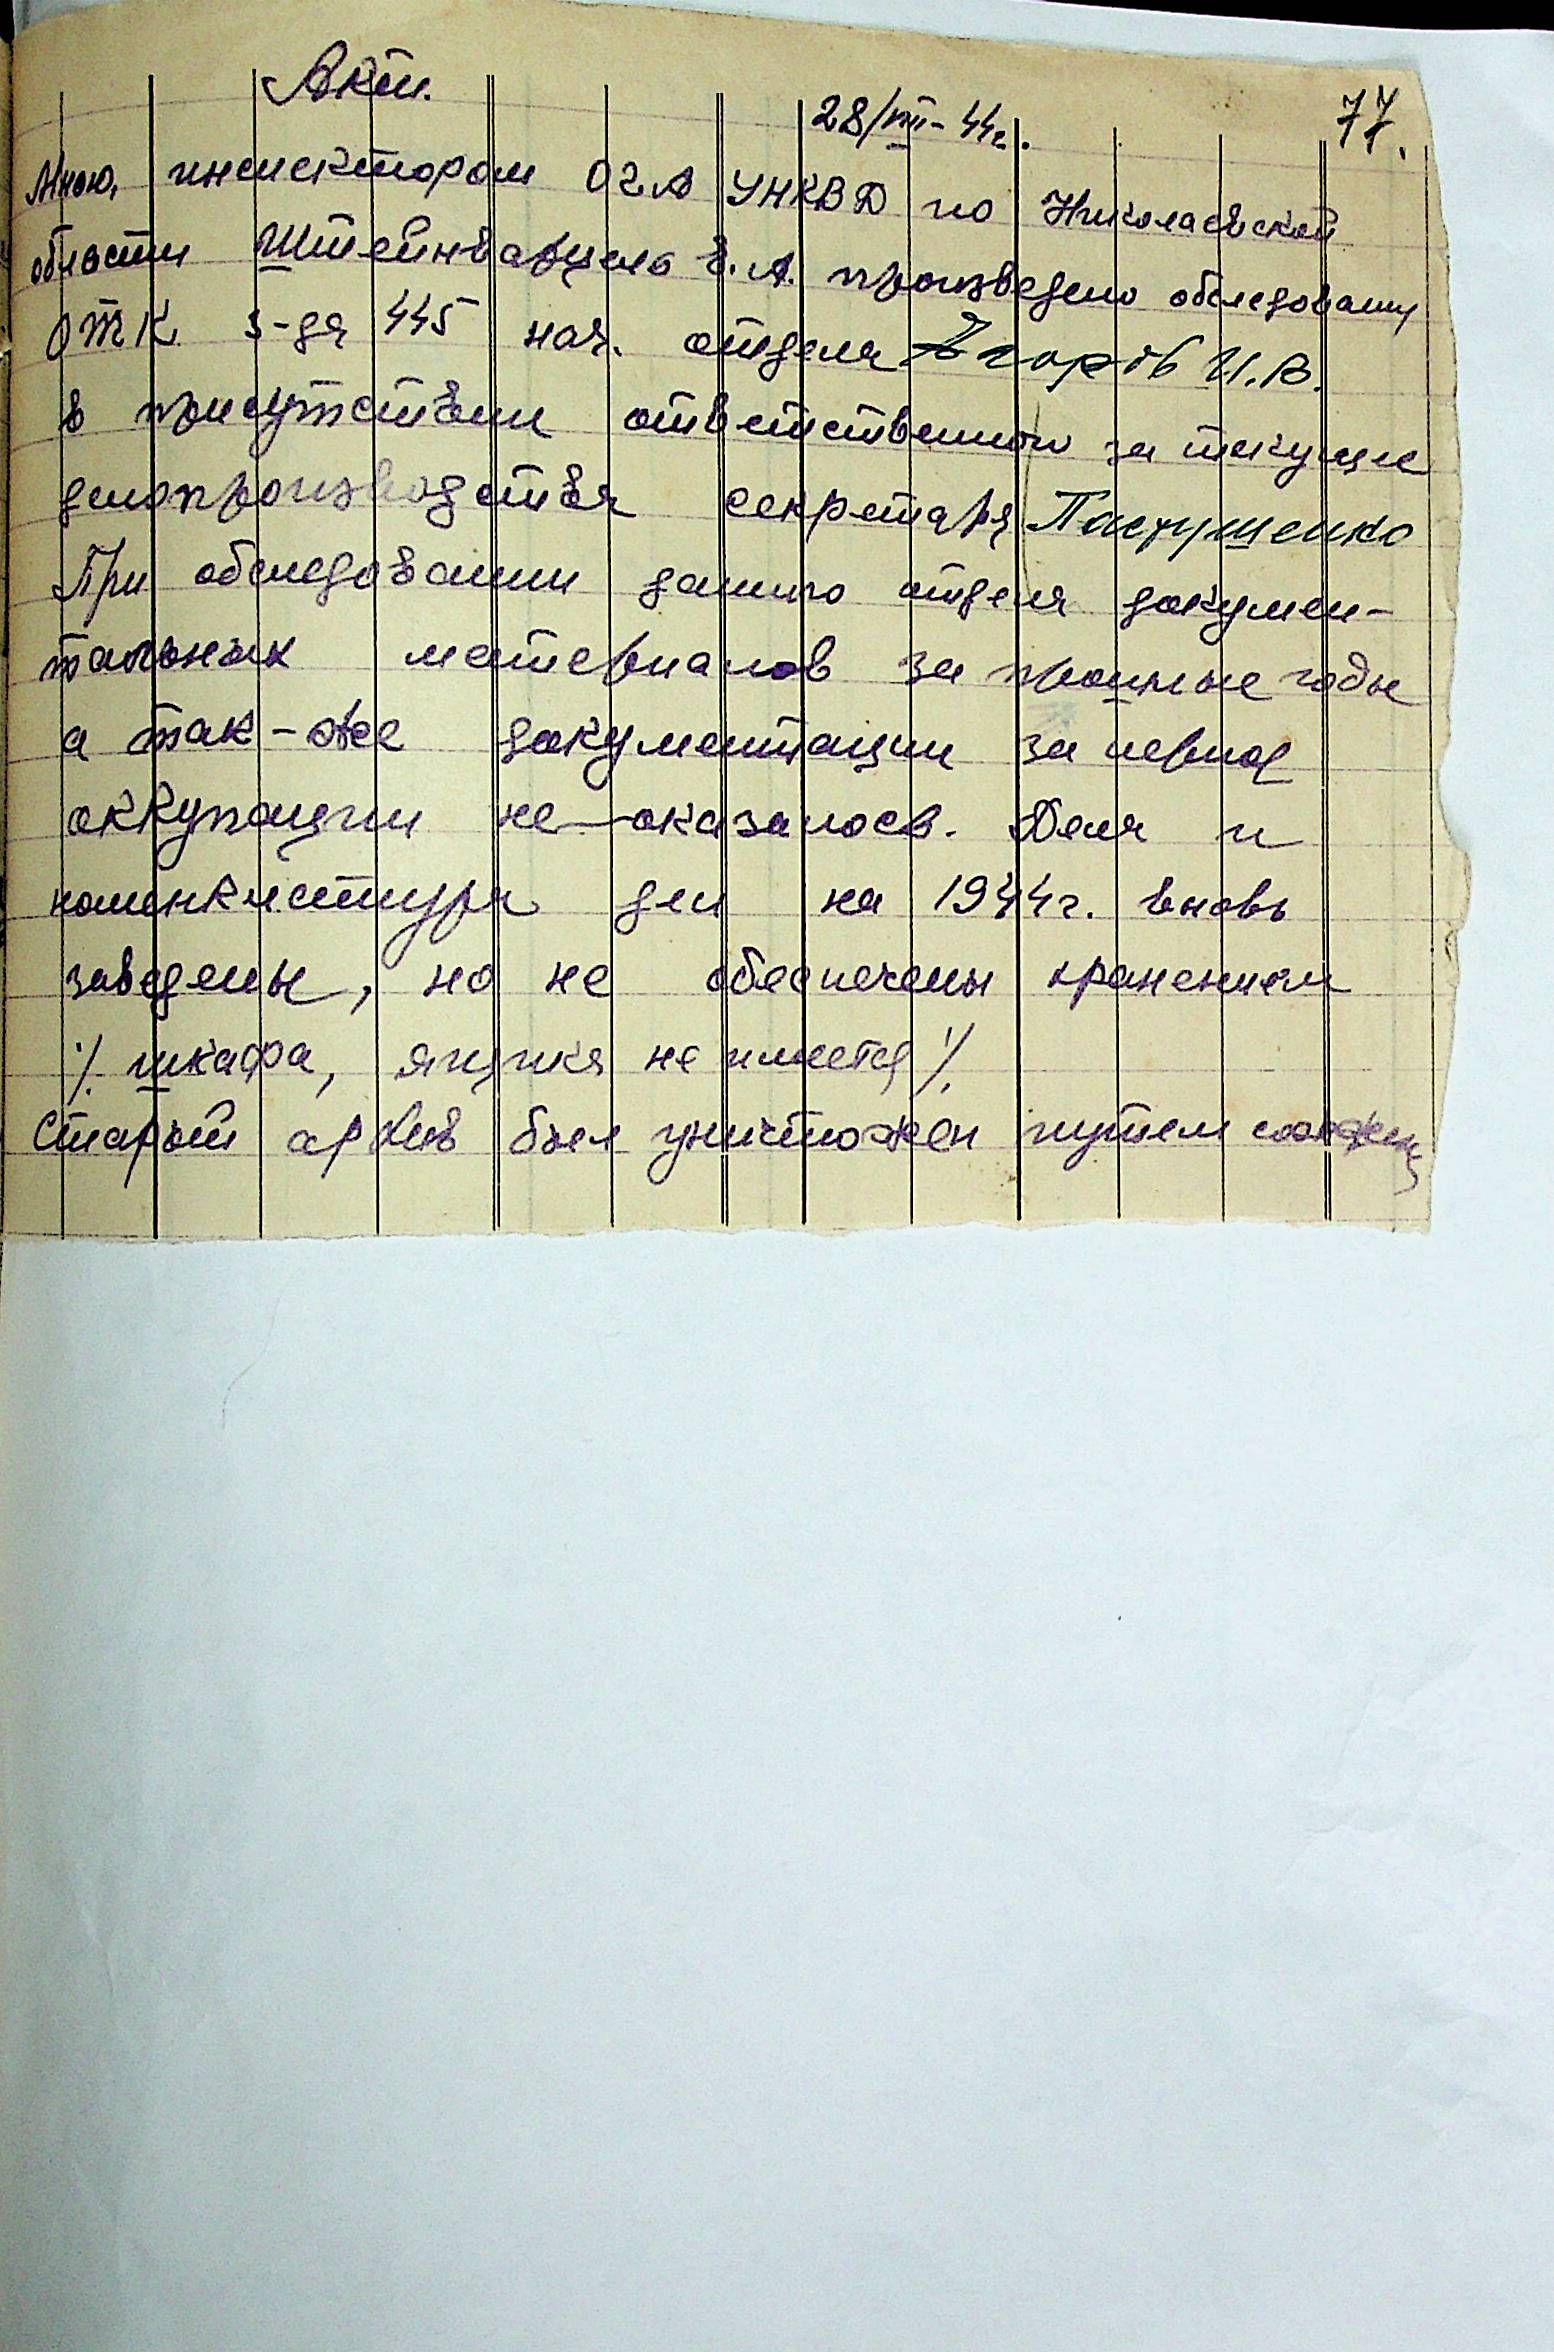 Акт.
28/VIII-44г.
77.
Мною, инспектором ОГА УНКВД по Николаевской
области Штейнварцель В.А. произведено обследование
ОТК з-да 445 нач. отдела И.В.
в присутствии ответственного за текущее
делопроизводства секретаря Пастушенко
При обследовании данного отдела докумен-
тальных материалов за прошлые годы
а так-же документации за период
оккупации не-оказалось. Дела и
номенклатура дел на 1944г. вновь
заведены, но не обеспечены хранением
/. шкафа, ящика не имеется /.
Старый архив был уничтожен путем